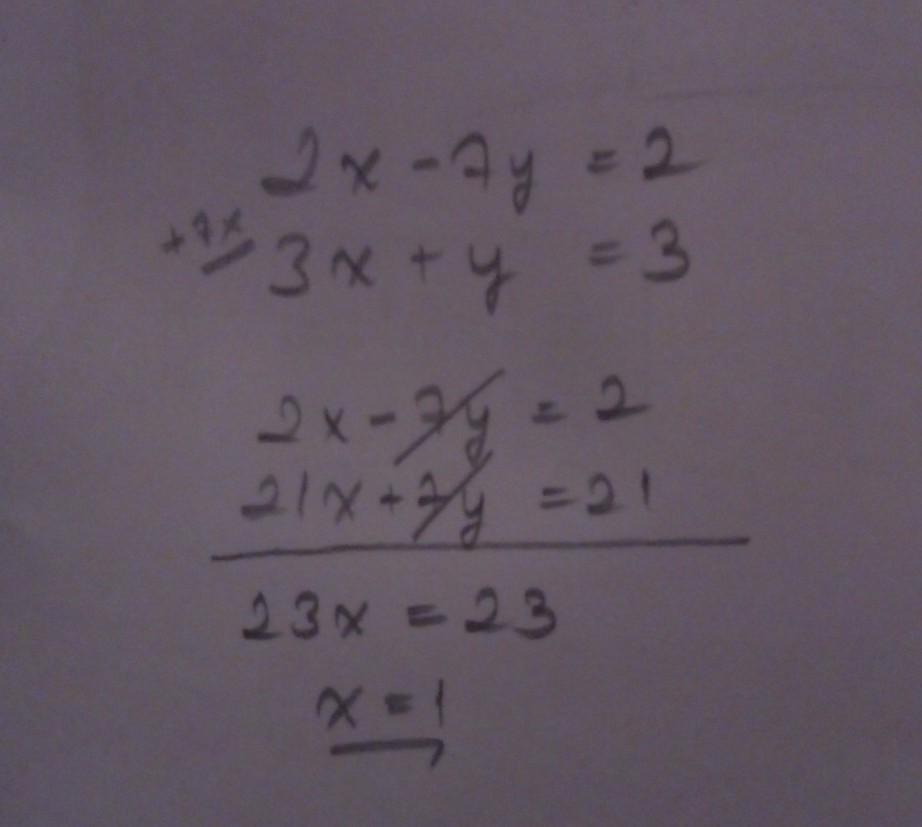 2x - 7y = 2
+7x 3x + y = 3
2x - 7y = 2
21x + 7y = 21
23x = 23
x = 1